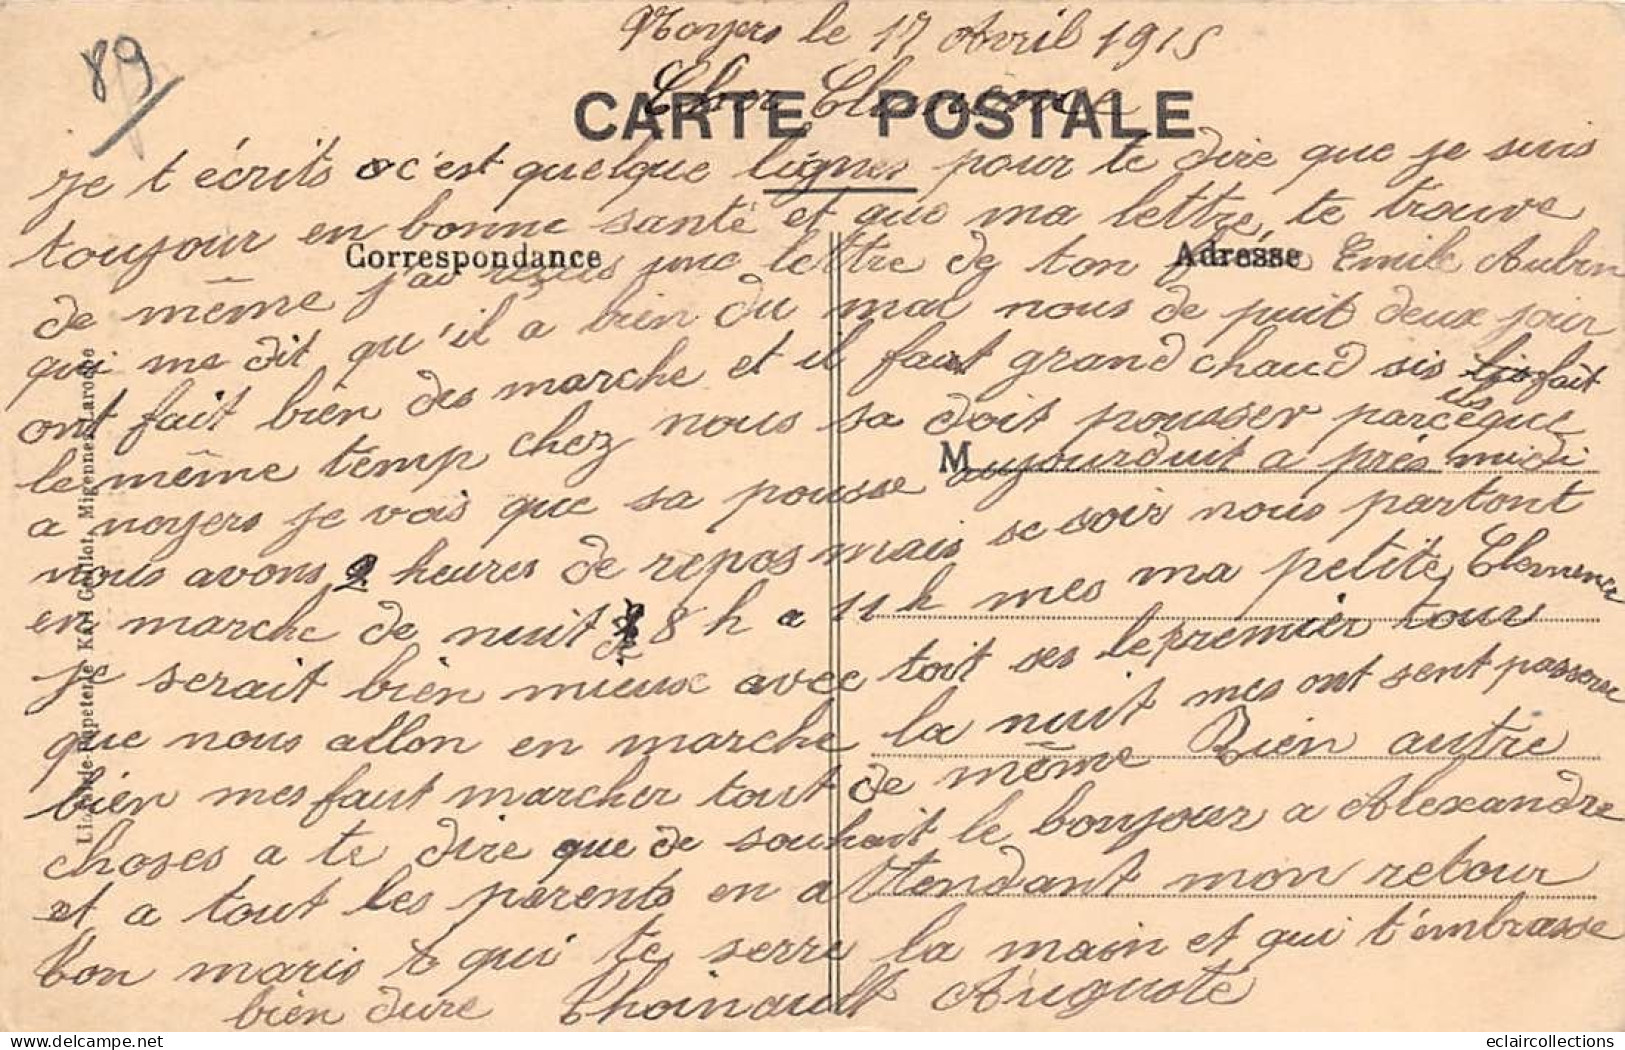 89
Noyers le 17 Avril 1915
CARTE POSTALE
Cher Clemence
je t écrits c'est quelque lignes pour te dire que je suis
toujour en bonne santé et que ma lettre te trouve
Correspondance
Adresse
de même j'ai reçus une lettre de ton Emile Aubin
qui me dit qu'il a bien du mal nous de puit deux jour
ont fait bien des marche et il faut grand chaud sis fait
le même temp chez nous sa doit pousser parceque ils
M
a noyers je vois que sa pousse aujourduit a près midi
nous avons 2 heures de repos mais se soir nous partont
en marche de nuit de 8 h a 11 h mes ma petite Clemence
je serait bien mieux avec toit ses le premier tour
que nous allon en marche la nuit mes ont sent passerer
bien mes faut marcher tout de même Bien autre
choses a te dire que de souhait le bonjour a Alexandre
et a tout les parents en attendant mon retour
ton maris t qui te serre la main et qui t'embrasse
bien dure Thoinault Auguste
Librairie-Papeterie Karl Guillot, Migennes-Laroche
eclaircollections